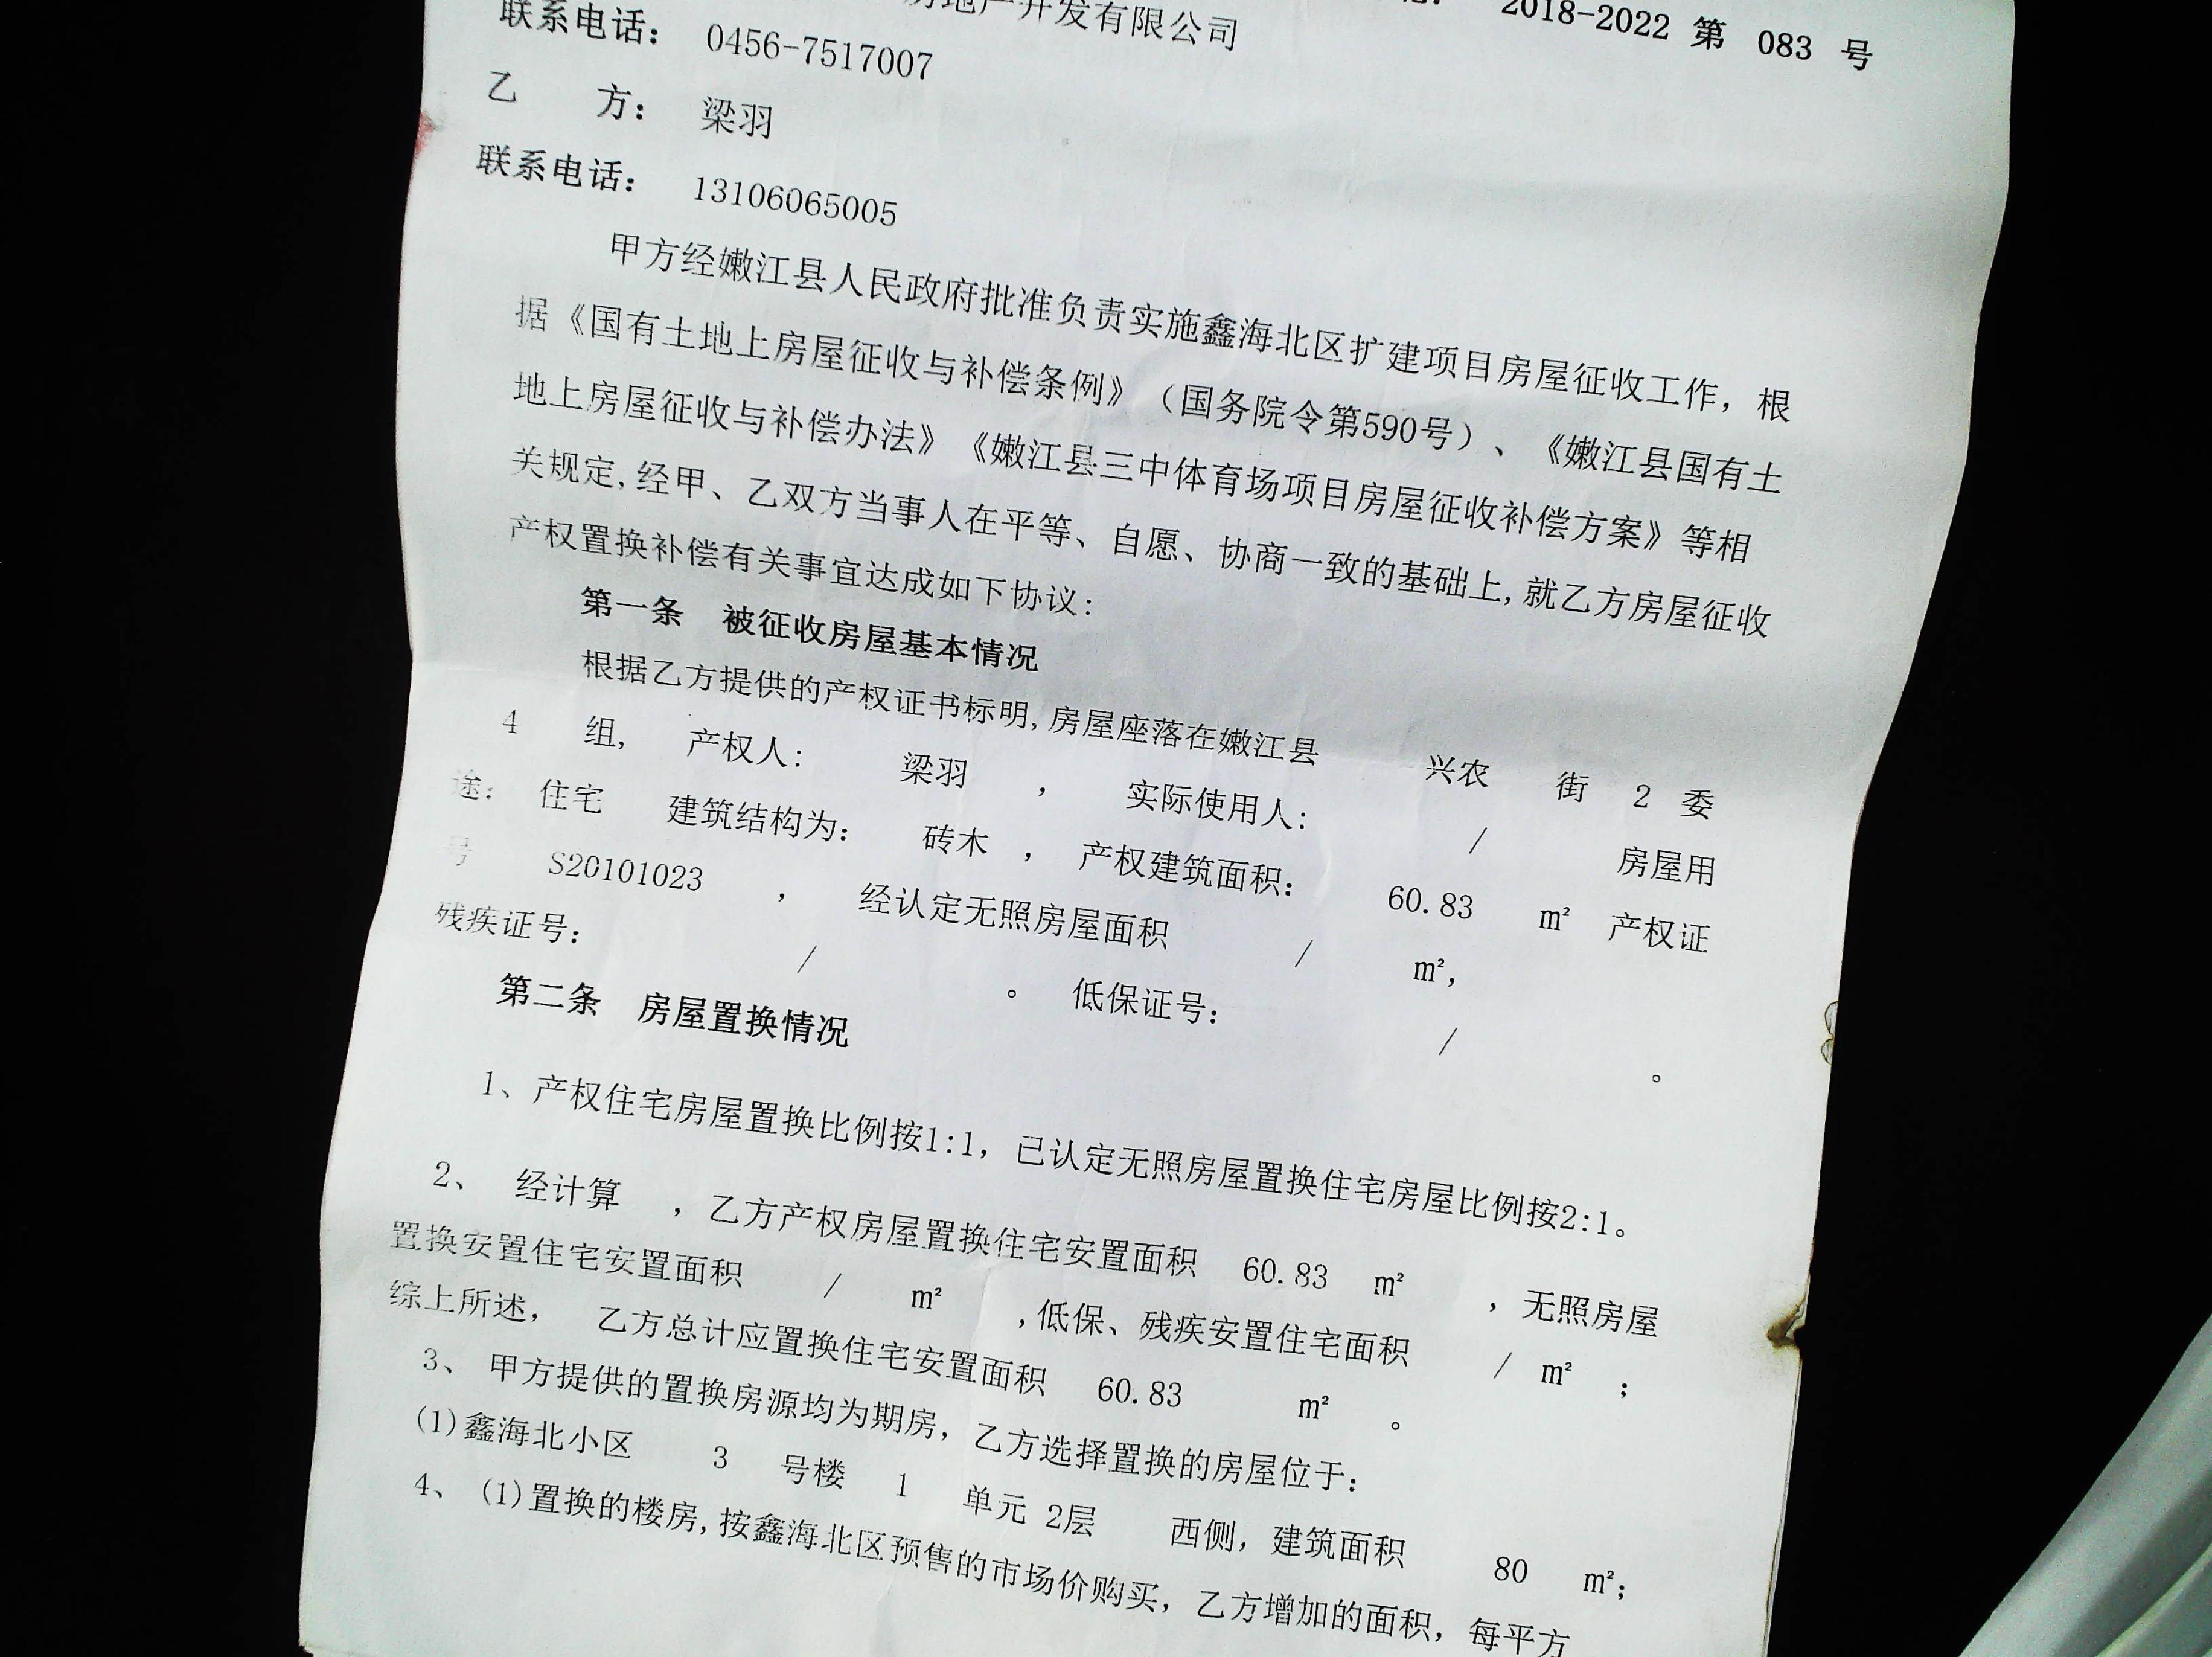 2018-2022 第 083 号
房地产开发有限公司
联系电话： 0456-7517007
乙 方： 梁羽
联系电话： 13106065005
甲方经嫩江县人民政府批准负责实施鑫海北区扩建项目房屋征收工作，根
据《国有土地上房屋征收与补偿条例》（国务院令第590号）、《嫩江县国有土
地上房屋征收与补偿办法》《嫩江县三中体育场项目房屋征收补偿方案》等相
关规定,经甲、乙双方当事人在平等、自愿、协商一致的基础上,就乙方房屋征收
产权置换补偿有关事宜达成如下协议：
第一条 被征收房屋基本情况
根据乙方提供的产权证书标明,房屋座落在嫩江县 兴农 街 2 委
4 组， 产权人： 梁羽 ， 实际使用人： / 房屋用
途： 住宅 建筑结构为： 砖木 ， 产权建筑面积： 60.83 m² 产权证
号 S20101023 ， 经认定无照房屋面积 / m²，
残疾证号： / 。 低保证号： / 。
第二条 房屋置换情况
1、产权住宅房屋置换比例按1:1，已认定无照房屋置换住宅房屋比例按2:1。
2、 经计算 ，乙方产权房屋置换住宅安置面积 60.83 m² ，无照房屋
置换安置住宅安置面积 / m² ,低保、残疾安置住宅面积 / m² ；
综上所述， 乙方总计应置换住宅安置面积 60.83 m² 。
3、 甲方提供的置换房源均为期房，乙方选择置换的房屋位于：
(1)鑫海北小区 3 号楼 1 单元 2层 西侧，建筑面积 80 m²；
4、 (1)置换的楼房,按鑫海北区预售的市场价购买，乙方增加的面积，每平方